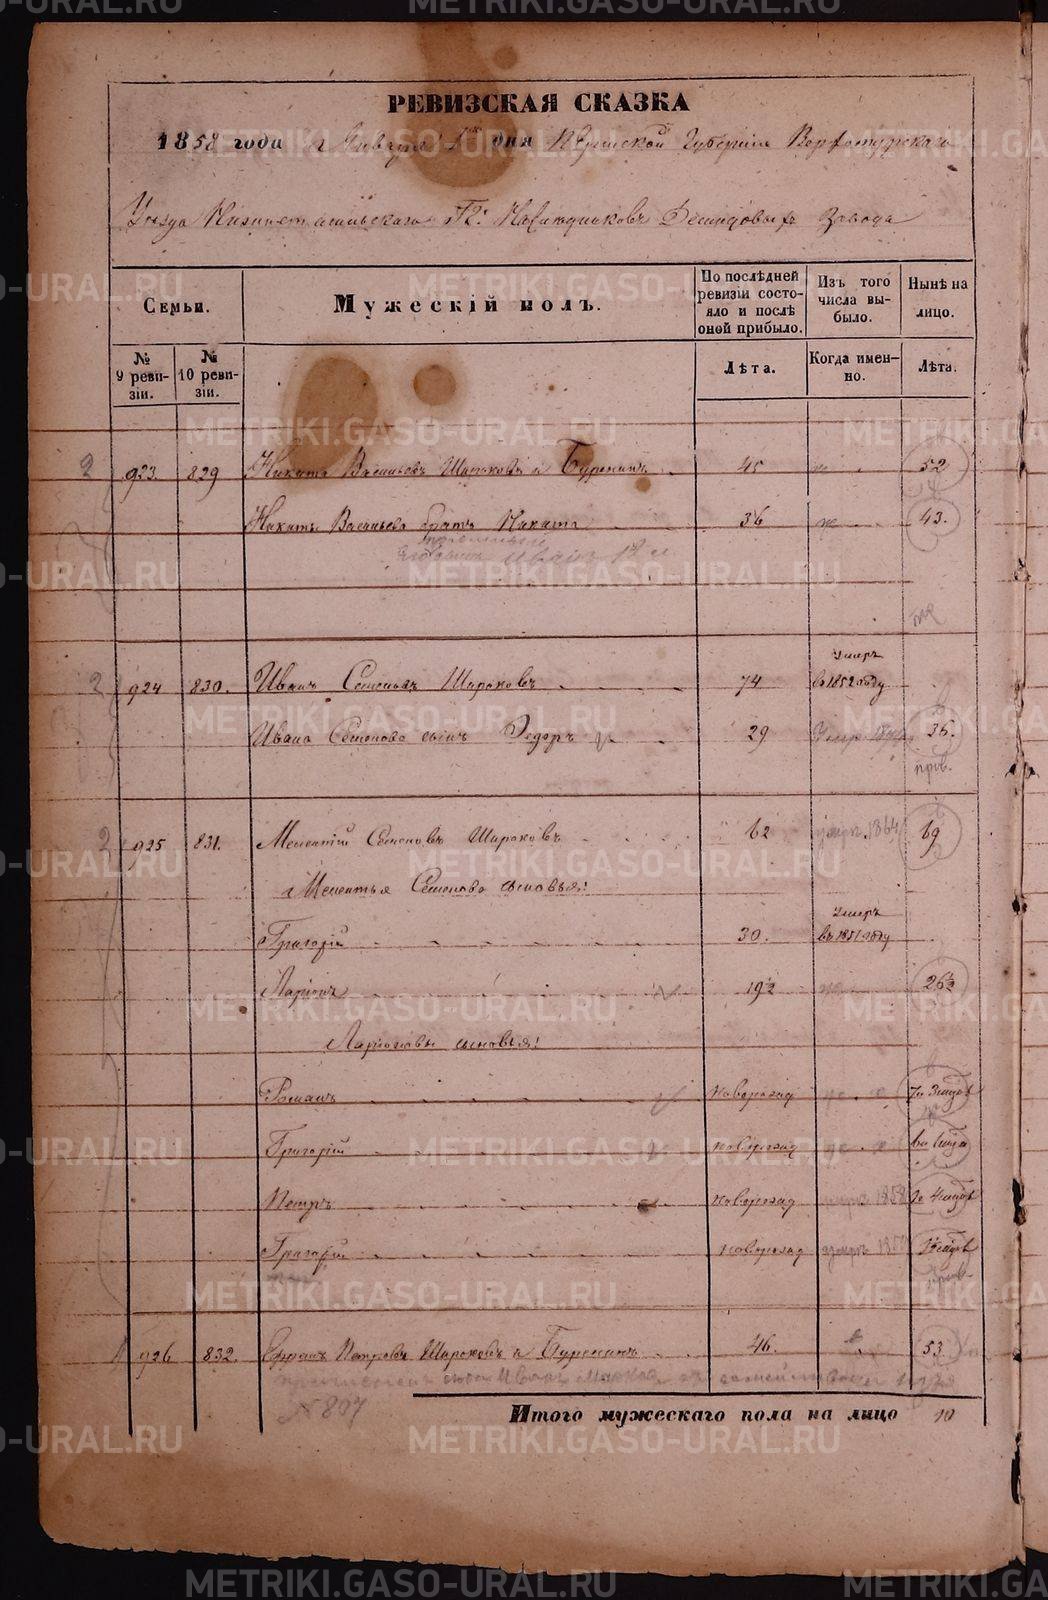 РЕВИЗСКАЯ СКАЗКА
1858 года Января дня Пермской Губернiи Верхотурскаго
Уѣзда Нижнетагильскаго Гг. Наслѣдниковъ Демидовыхъ Завода
Семьи.
Мужескiй полъ.
По послѣдней ревизiи состояло и послѣ оной прибыло.
Изъ того числа выбыло.
Нынѣ на лицо.
№ 9 ревизiи.
№ 10 ревизiи.
Лѣта.
Когда именно.
Лѣта.
2 923. 829 Никита Васильевъ Широковъ и Буренинъ 45 52
Никиты Васильева братъ Никита 36 43.
Иванъ
2 924 830. Иванъ Семеновъ Широковъ 74 Умеръ въ 1852 году
Ивана Семенова сынъ Федоръ 29 36.
2 925 831. Мелентiй Семеновъ Широковъ 62 умеръ 1864 69
Мелентья Семенова сыновья:
Григорiй 30. Умеръ въ 1851 году
Ларiонъ 19½ 26½
Ларiоновы сыновья:
Романъ новорожд
Григорiй новорожд
Петръ новорожд 1858
Григорiй новорожд
926 832. Ефимъ Петровъ Широковъ и Буренинъ 46. 53
№ 807
Итого мужескаго пола на лицо 10
METRIKI.GASO-URAL.RU